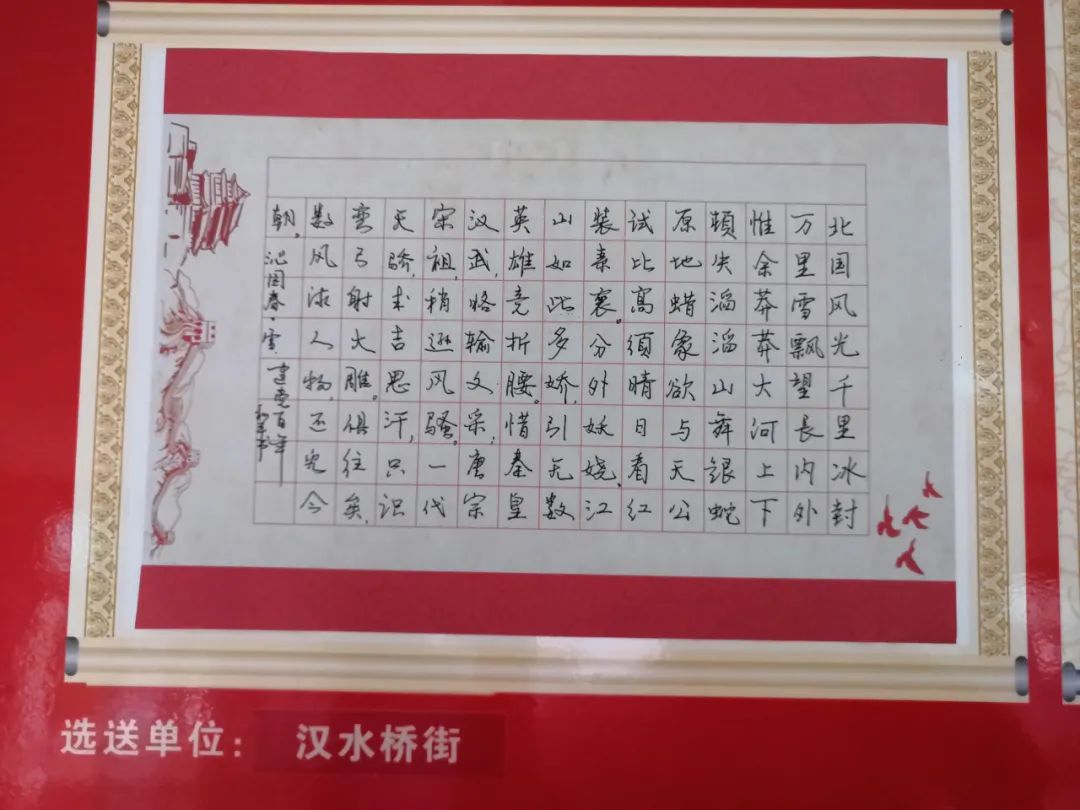 北国风光千里冰封
万里雪飘望长内外
惟余莽莽大河上下
顿失滔滔山舞银蛇
原地蜡象欲与天公
试比高须晴日看红
装素裹。分外妖娆,江
山如此多娇,引无数
英雄竞折腰。惜秦皇
汉武,略输文采,唐宗
宋祖,稍逊风骚。一代
天骄,成吉思汗,只识
弯弓射大雕。俱往矣,
数风流人物,还看今
朝。
沁园春·雪 建党百年
选送单位: 汉水桥街